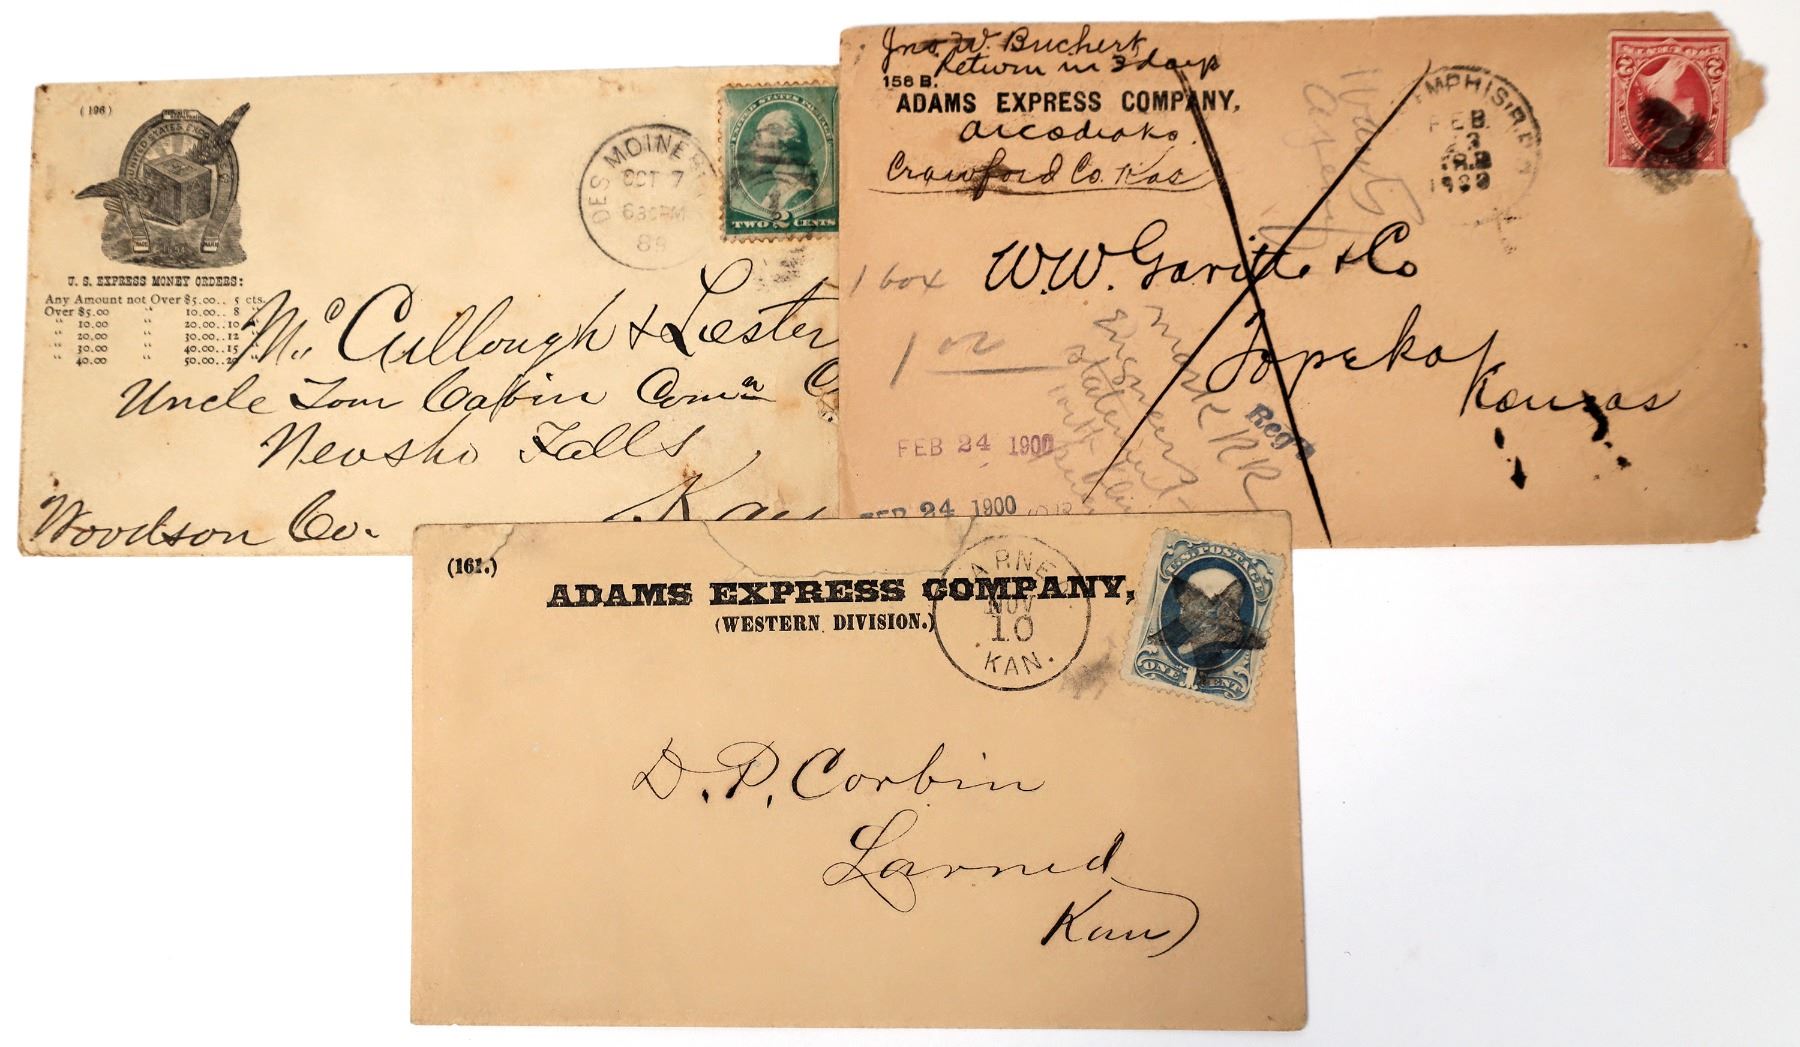 ( 196 )
UNITED STATES EXPRESS
TRADE MARK
U. S. EXPRESS MONEY ORDERS:
Any Amount not Over $5.00.. 5 cts.
Over $5.00 " 10.00.. 8 "
" 10.00 " 20.00..10 "
" 20.00 " 30.00..12 "
" 30.00 " 40.00..15 "
" 40.00 " 50.00..20 "
DES MOINE
OCT 7
630PM
UNITED STATES POSTAGE
TWO 2 CENTS
Mc Cullough & Lester
Uncle Tom Cabin Comn Co.
Neosho Falls
Woodson Co. Kan
Jno. W. Buchert
Return in 3 days
158 B.
ADAMS EXPRESS COMPANY,
Arcadia Ko.
Crawford Co. Kas
MPHIS, R.P.
FEB
2 2
W.W. Gavitt & Co
Topeka
Kansas
1 box
1 00
mark RR
Engineers
statement
with
Regd
FEB 24 1900
FEB 24 1900
(161.)
ADAMS EXPRESS COMPANY,
(WESTERN DIVISION.)
ARNE
NOV
10
KAN.
U.S. POSTAGE
ONE 1 CENT
D. P. Corbin
Larned
Kan